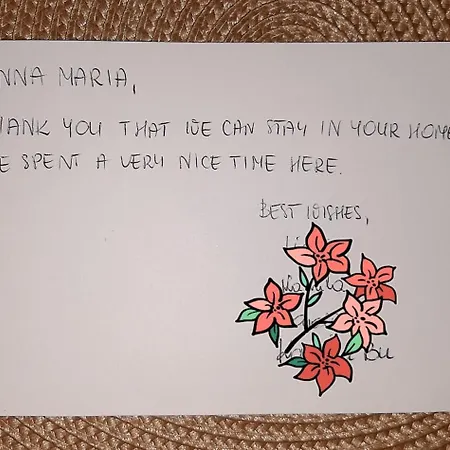 NNA MARIA,
HANK YOU THAT WE CAN STAY IN YOUR HOME
E SPENT A VERY NICE TIME HERE.
BEST WISHES,